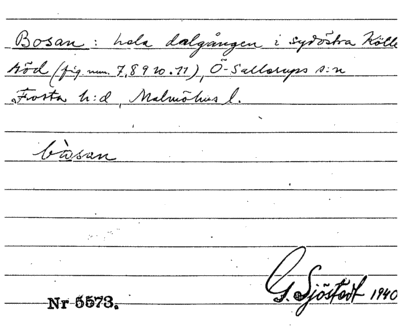 Bosan: hela dalgången i sydöstra Kölle
röd (fig. num. 7, 8 9 10. 11), Ö-Sallerups s:n
Frosta h:d, Malmöhus l.
bòsan
G. Sjöstedt 1940
Nr 5573.